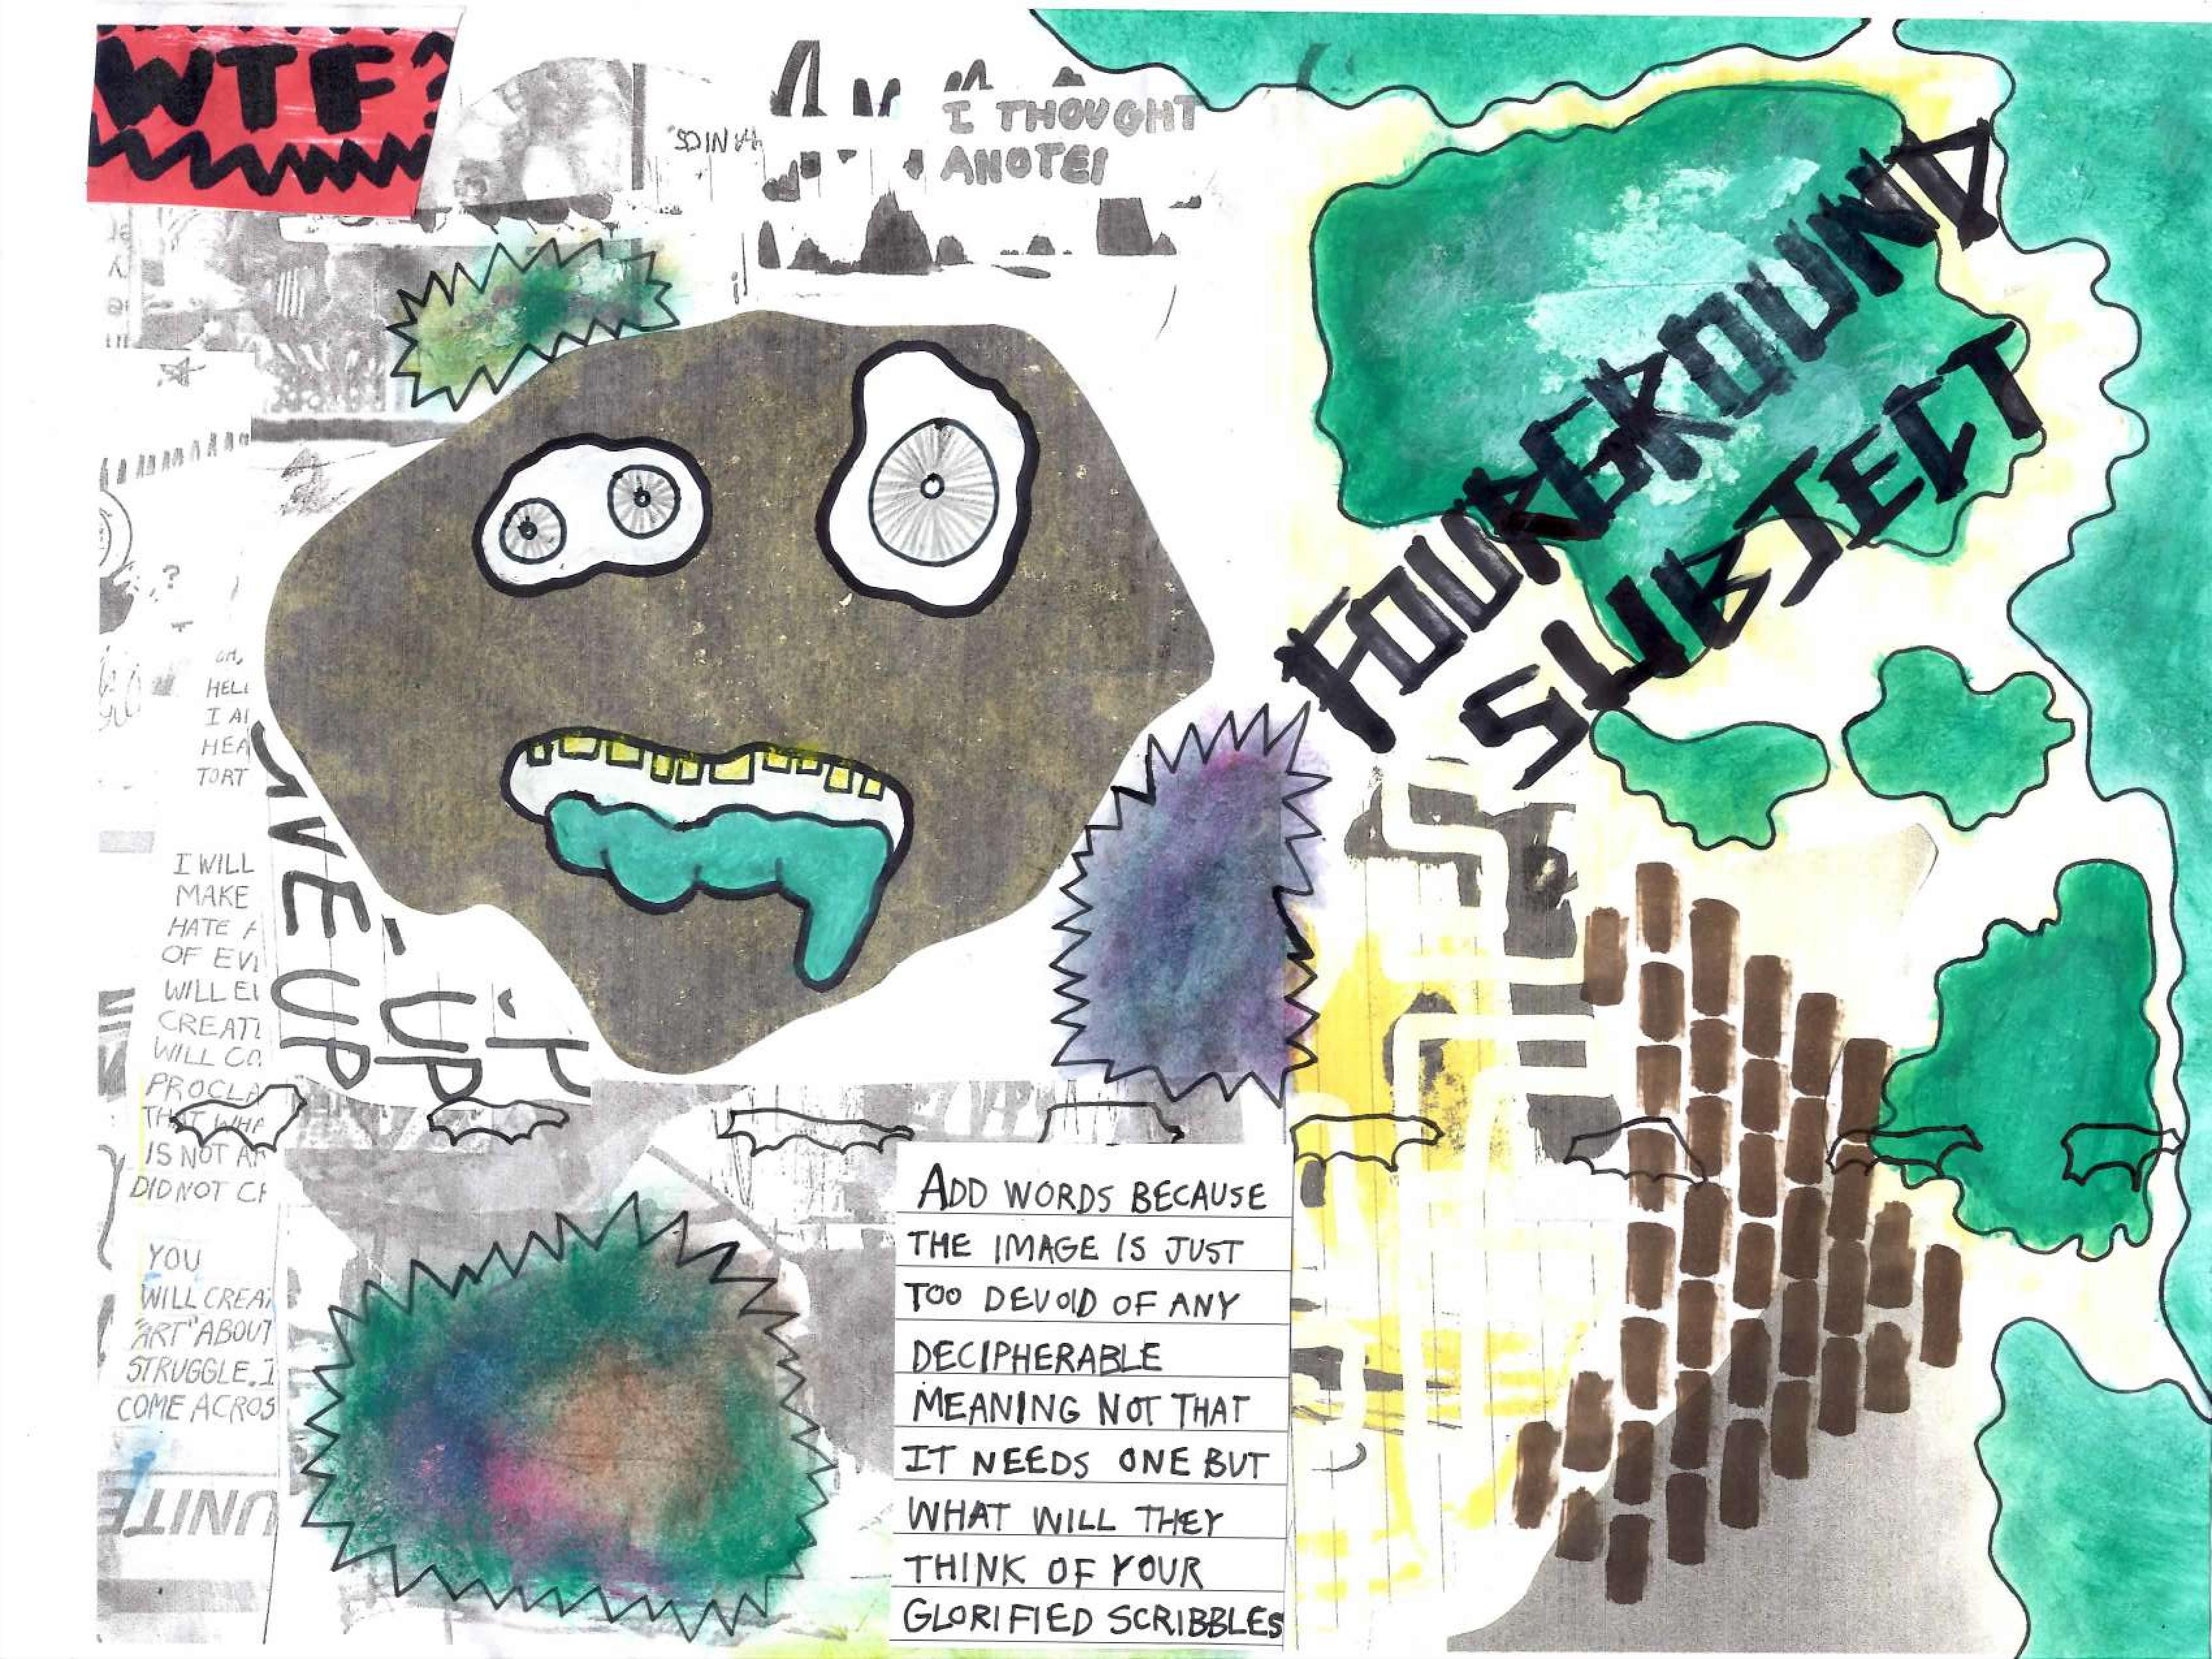 WTF?
I THOUGHT
FOURGROUND
SUBJECT
?
HEL
I AI
HEA
TORT
UP
UP
I WILL
MAKE
HATE
OF EVI
WILL
CREAT
WILL
PROCLA
THAT WHA
IS NOT
DID NOT
YOU
WILL CREAT
"ART" ABOUT
STRUGGLE. I
COME ACROS
UNITE
ADD WORDS BECAUSE
THE IMAGE IS JUST
TOO DEVOID OF ANY
DECIPHERABLE
MEANING NOT THAT
IT NEEDS ONE BUT
WHAT WILL THEY
THINK OF YOUR
GLORIFIED SCRIBBLES